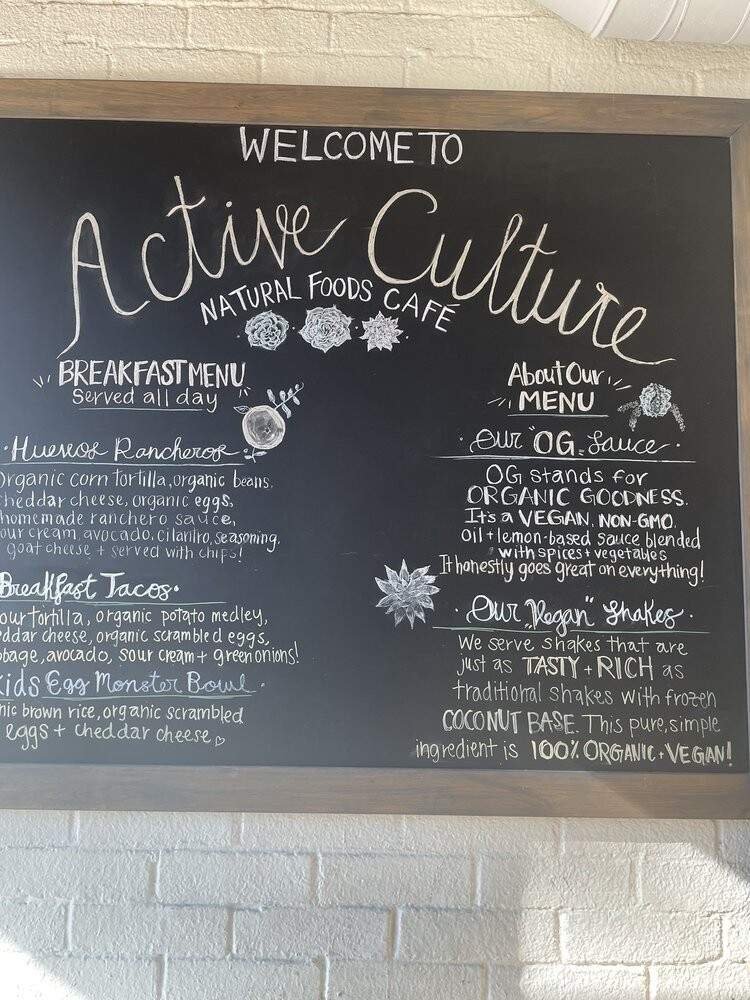 WELCOME TO
Active Culture
NATURAL FOODS CAFÉ
BREAKFAST MENU
Served all day
Huevos Rancheros
Organic corn tortilla, organic beans,
cheddar cheese, organic eggs,
homemade ranchero sauce,
sour cream, avocado, cilantro, seasoning,
goat cheese + served with chips!
Breakfast Tacos
our tortilla, organic potato medley,
ddar cheese, organic scrambled eggs,
bage, avocado, sour cream + green onions!
Kids Egg Monster Bowl
nic brown rice, organic scrambled
eggs + cheddar cheese
About Our
MENU
Our "OG" Sauce
OG stands for
ORGANIC GOODNESS.
It's a VEGAN, NON-GMO,
Oil + lemon-based sauce blended
with spices + vegetables
It honestly goes great on everything!
Our "Vegan" Shakes
We serve shakes that are
just as TASTY + RICH as
traditional shakes with frozen
COCONUT BASE. This pure, simple
ingredient is 100% ORGANIC + VEGAN!